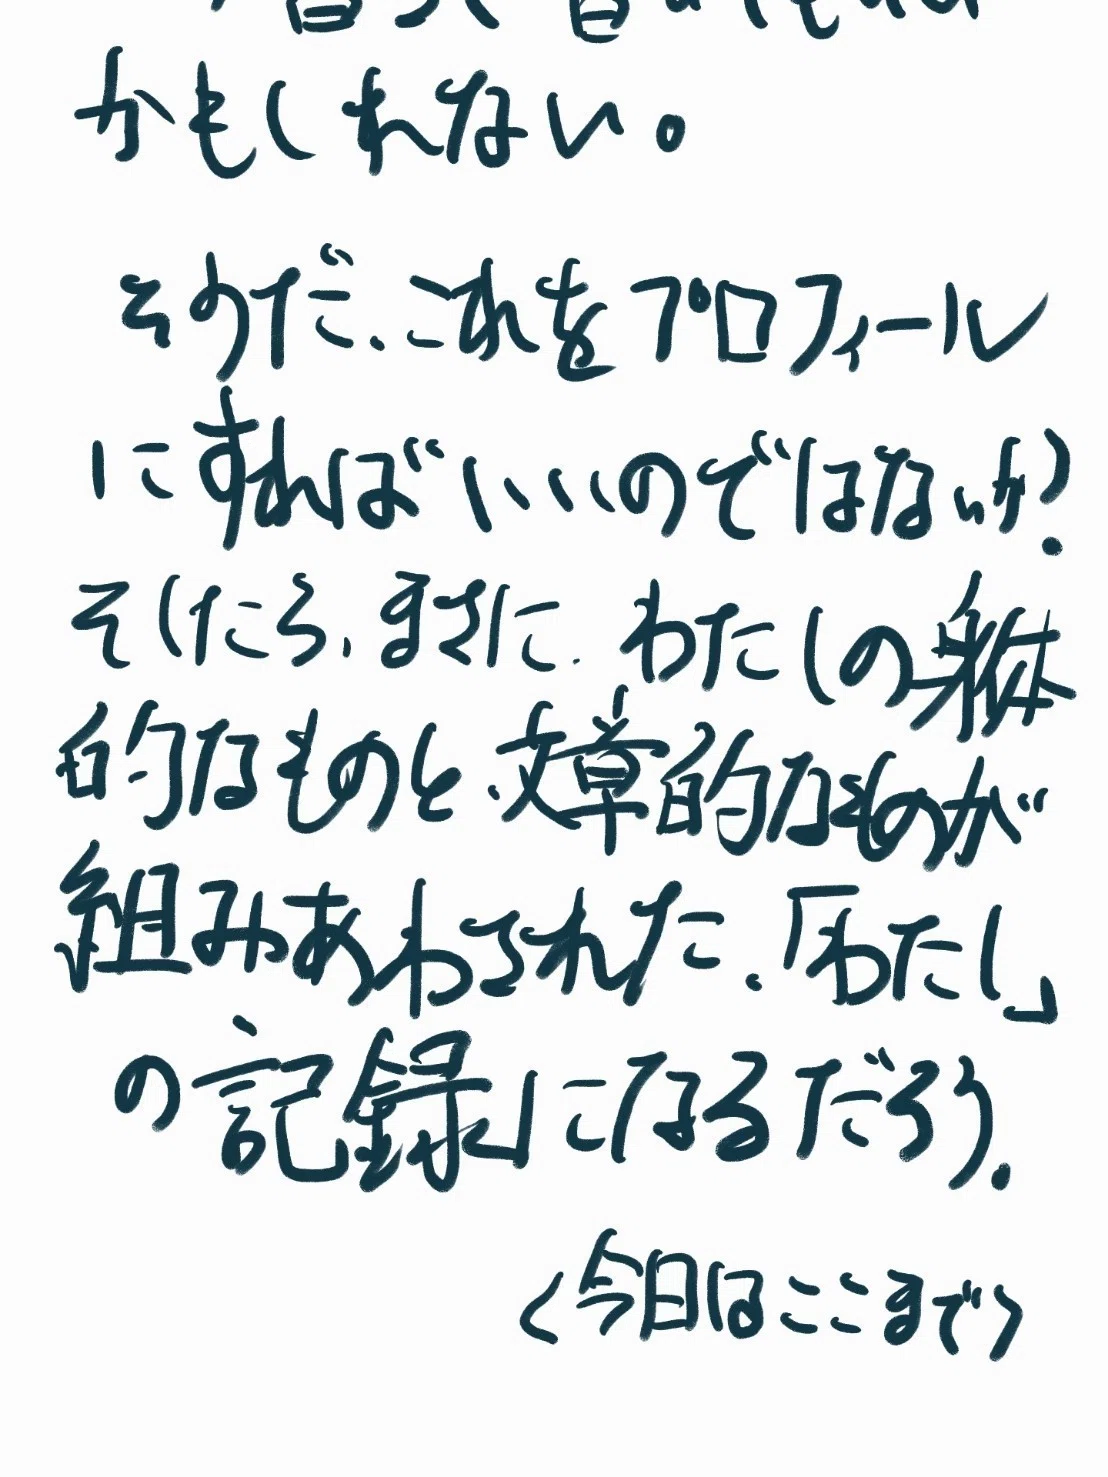 かもしれない。
そうだ、これをプロフィール
にすればいいのではないか?
そしたら、まさに、わたしの身体
的なものと、文章的なものが
組みあわされた、「わたし」
の記録」になるだろう。
〈今日はここまで〉